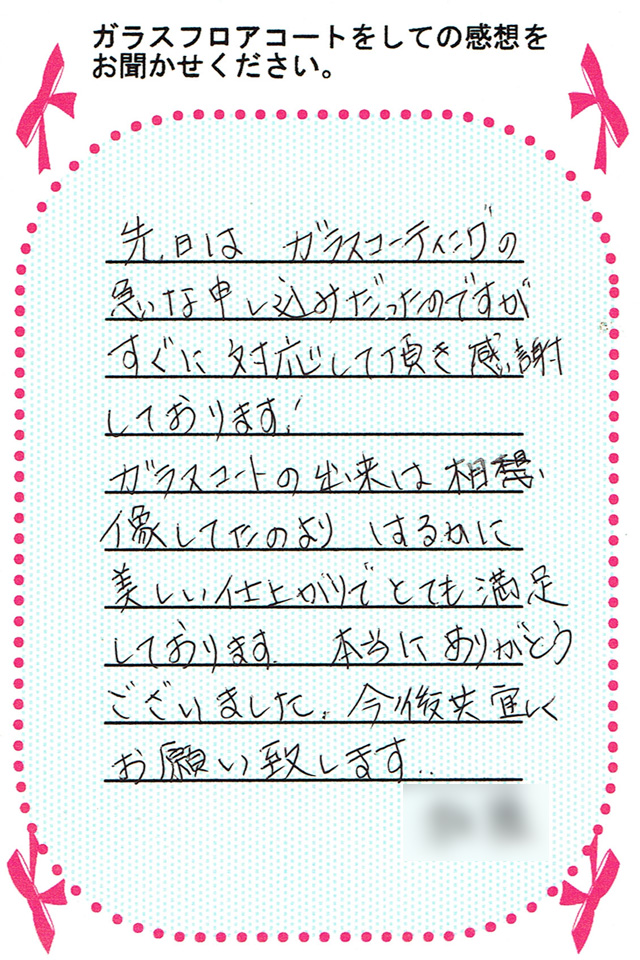 ガラスフロアコートをしての感想を
お聞かせください。
先日は ガラスコーティングの
急いな申し込みだったのですが
すぐに対応して頂き感謝
しております!
ガラスコートの出来は相想
像してたのより はるかに
美しい仕上がりでとても満足
しております. 本当にありがとう
ございました. 今後共宜しく
お願い致します..